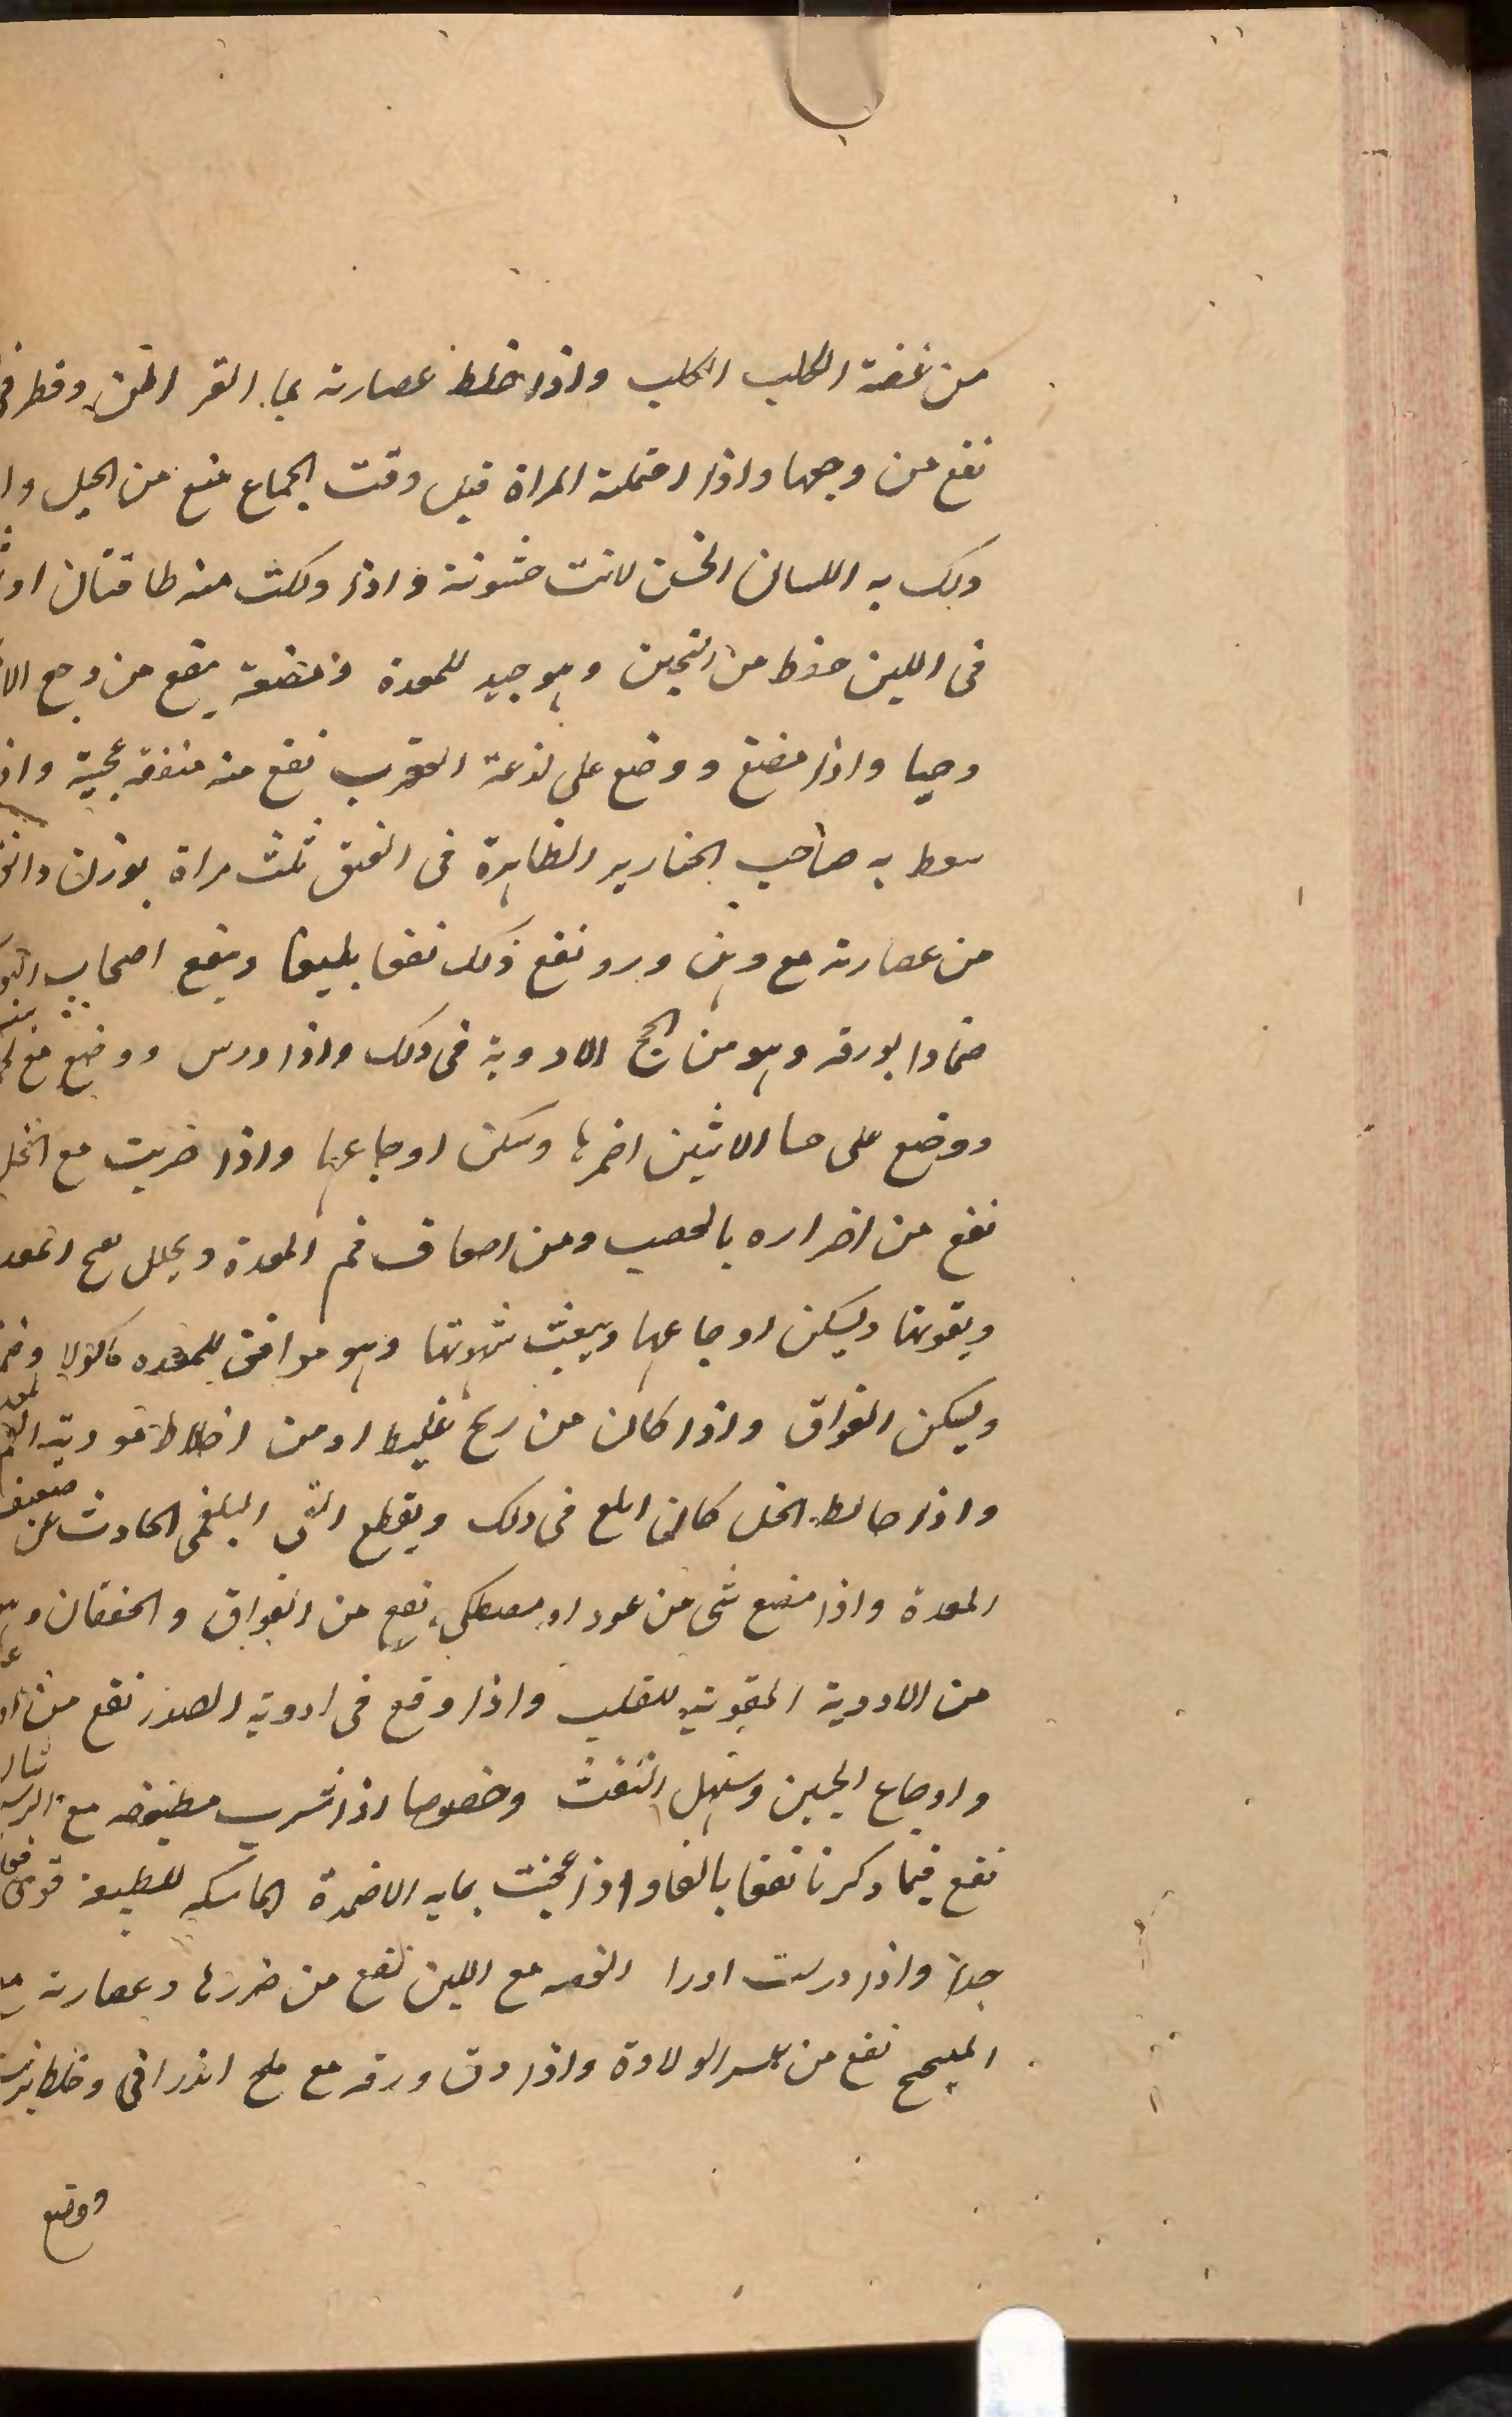 من عضة الكلب الكلب واذا خلط عصارته بماء القراطن وقطر فى
نفع من وجعها واذا احتملته المراة قبل وقت الجماع منع من الحبل وا
دلك به اللسان الخشن لانت خشونته واذا دلكت منه طاقتان او
فى اللبن حفظ من التجبن وهو جيد للمعدة ومضغه ينفع من وجع الا
وحيا واذا مضغ ووضع على لذعة العقرب نفع منه منفعة عجيبة واذ
سعط به صاحب الخنازير الظاهرة فى العنق ثلث مراة بوزن دانق
من عصارته مع دهن ورد نفع ذلك نفعا بليغا وينفع اصحاب البو
ضمادا بورقه وهو من انجح الادوية فى ذلك واذا درس ووضع مع
ووضع على حسا الانثيين اضمرها وسكن اوجاعها واذا ضربت مع الخل
نفع من اضراره بالعصب ومن اضعاف فم المعدة ويحلل نفخ المعد
ويقويها ويسكن اوجاعها ويبعث شهوتها وهو موافق للمعده ماكولا وضما
ويسكن الفواق واذا كان من ريح غليظ او من اخلاط موذية
واذا خالط الخل كان ابلغ فى ذلك ويقطع القى البلغمى الحادث عن ضعيف
المعدة واذا مضغ شى من عود او مصطكى نفع من الفواق والخفقان وهو
من الادوية المقوية للقلب واذا وقع فى ادوية الصدر نفع من
واوجاع الجبين وسهل النفث وخصوصا اذا شرب مطبوخه مع
نفع فيما ذكرنا نفعا بالغا واذا عجنت بمايه الاضمدة الماسكه للطبيعة قوى
جدا واذا درست اورا الغضه مع اللبن نفع من ضررها وعصارته
نفع من عسر الولادة واذا دق ورقه مع ملح اندرانى وخلط بزيت
ووضع